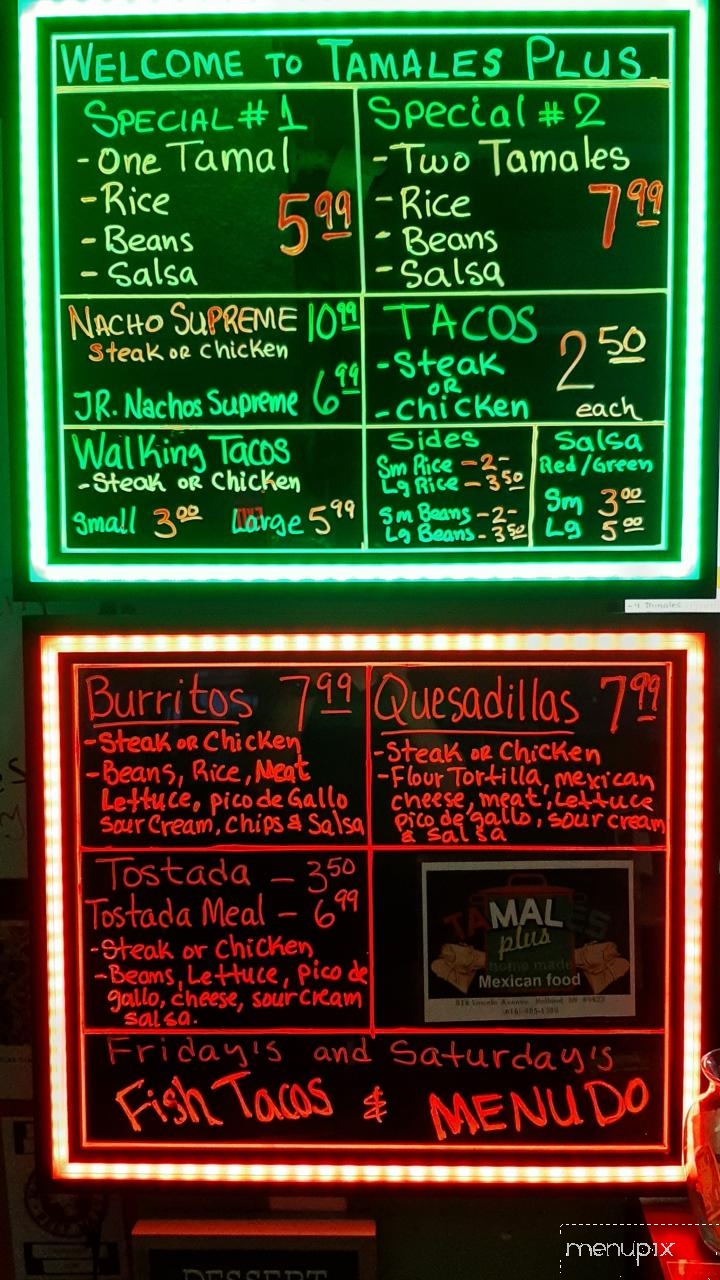 WELCOME TO TAMALES PLUS
SPECIAL #1
-One Tamal
-Rice
-Beans
-Salsa
5.99
Special #2
-Two Tamales
-Rice
-Beans
-Salsa
7.99
NACHO SUPREME 10.99
Steak or Chicken
JR. Nachos Supreme 6.99
TACOS
-Steak
OR
-Chicken
2.50
each
Walking Tacos
-Steak or Chicken
Small 3.00 Large 5.99
Sides
Sm Rice -2-
Lg Rice - 3.50
Sm Beans -2-
Lg Beans - 3.50
Salsa
Red/Green
Sm 3.00
Lg 5.00
Burritos 7.99
-Steak or Chicken
-Beans, Rice, Meat
Lettuce, pico de Gallo
sour Cream, Chips & Salsa
Quesadillas 7.99
-Steak or Chicken
-Flour Tortilla, mexican
cheese, meat, Lettuce
Pico de gallo, sour cream
& salsa
Tostada - 3.50
Tostada Meal - 6.99
-Steak or Chicken
-Beans, Lettuce, pico de
gallo, cheese, sour cream
salsa.
TAMALES
plus
home made
Mexican food
Friday's and Saturday's
Fish Tacos & MENUDO
DESSERT
menupix